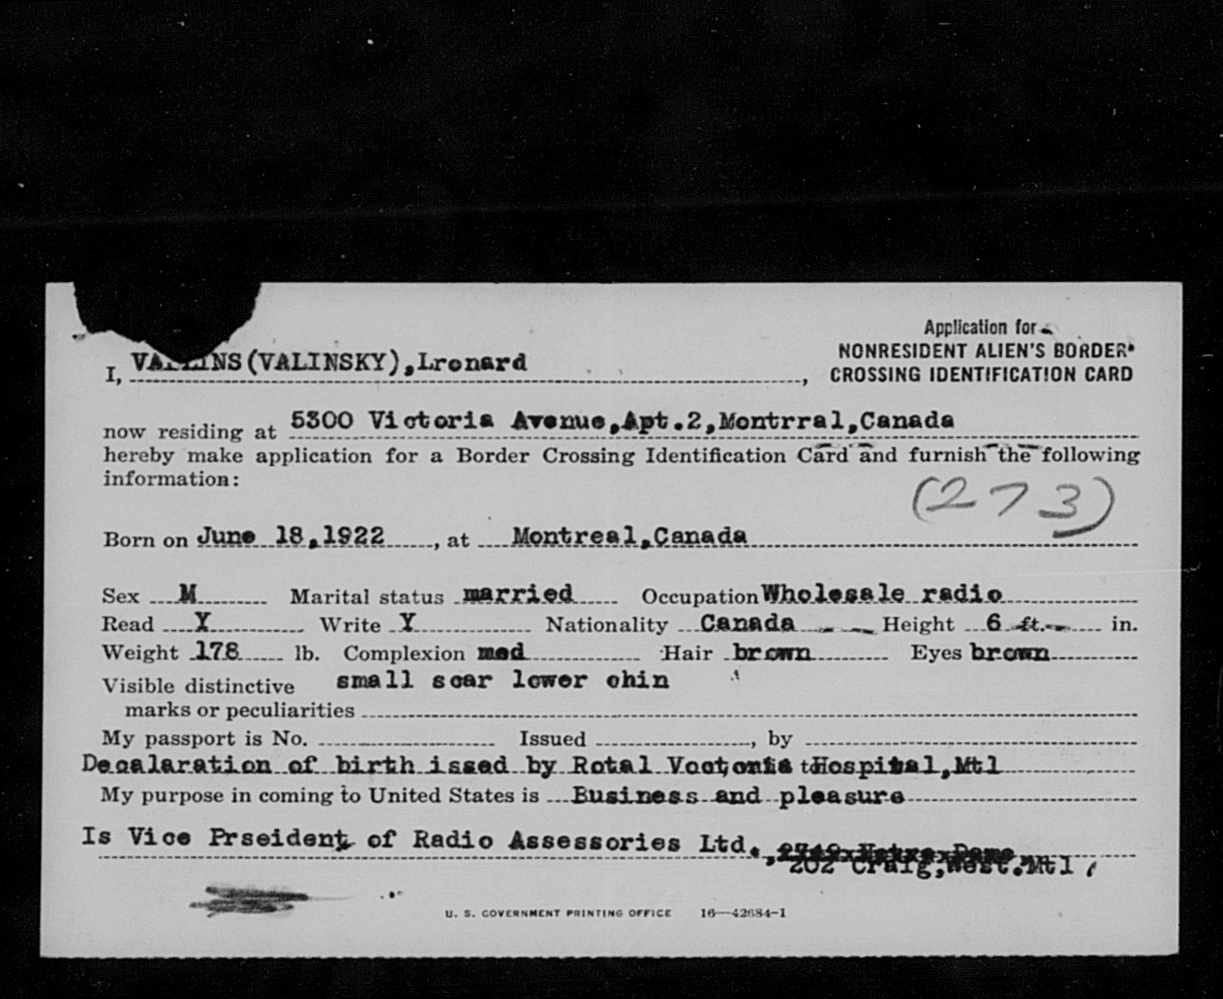 Application for
NONRESIDENT ALIEN'S BORDER
CROSSING IDENTIFICATION CARD
I, VALLINS(VALINSKY),Lronard,
now residing at 5300 Victoria Avenue,Apt.2,Montrral,Canada
hereby make application for a Border Crossing Identification Card and furnish the following
information:
(273)
Born on June 18,1922, at Montreal,Canada
Sex M Marital status married Occupation Wholesale radio
Read Y Write Y Nationality Canada Height 6 ft. in.
Weight 178 lb. Complexion med Hair brown Eyes brown
Visible distinctive small scar lower chin
marks or peculiarities
My passport is No. Issued , by
Decalaration of birth issed by Rotal Hospital,Mtl
My purpose in coming to United States is Business and pleasure
Is Vice Prseident of Radio Assessories Ltd.,
202 Craig,West.Mtl
U. S. GOVERNMENT PRINTING OFFICE 16—42684-1